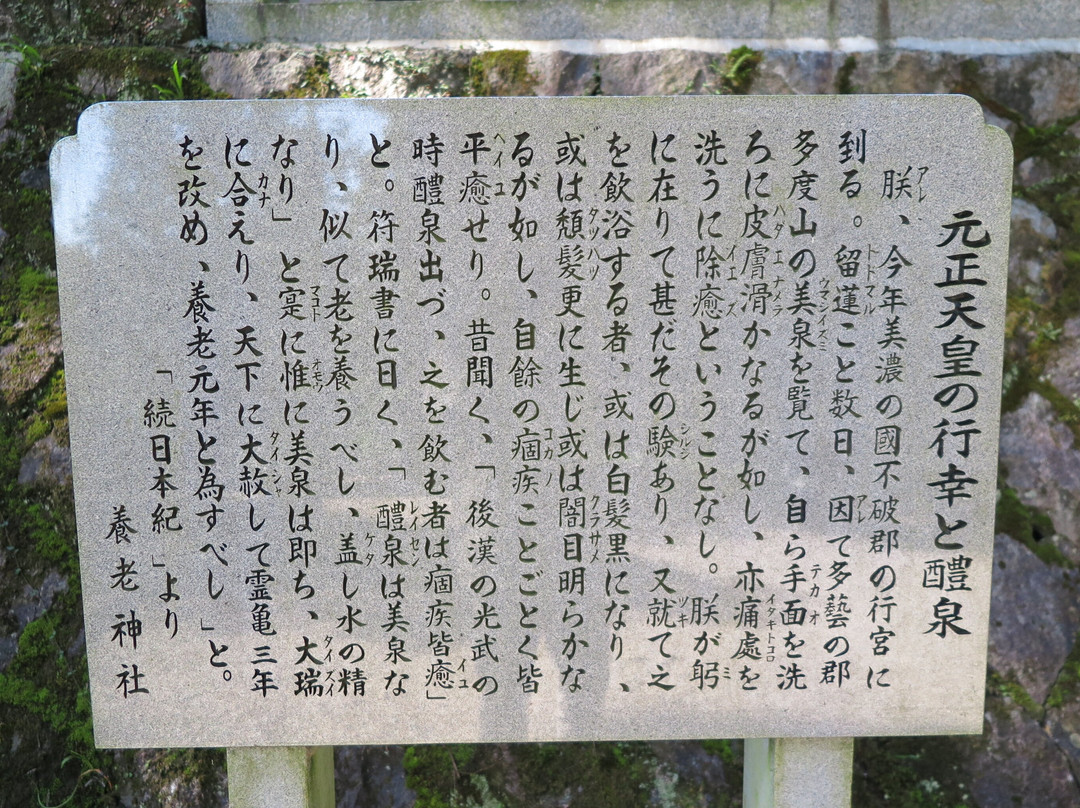 元正天皇の行幸と醴泉
朕、今年美濃の國不破郡の行宮に
到る。留蓮こと数日、因て多藝の郡
多度山の美泉を覧て、自ら手面を洗
ろに皮膚滑かなるが如し、亦痛處を
洗うに除癒ということなし。朕が躬
に在りて甚だその験あり、又就て之
を飲浴する者、或は白髪黒になり、
或は頽髪更に生じ或は闇目明らかな
るが如し、自餘の痼疾ことごとく皆
平癒せり。昔聞く、「後漢の光武の
時醴泉出づ、之を飲む者は痼疾皆癒」
と。符瑞書に曰く、「醴泉は美泉な
り、似て老を養うべし、盖し水の精
なり」と寔に惟に美泉は即ち、大瑞
に合えり、天下に大赦して霊亀三年
を改め、養老元年と為すべし」と。
「続日本紀」より
養老神社